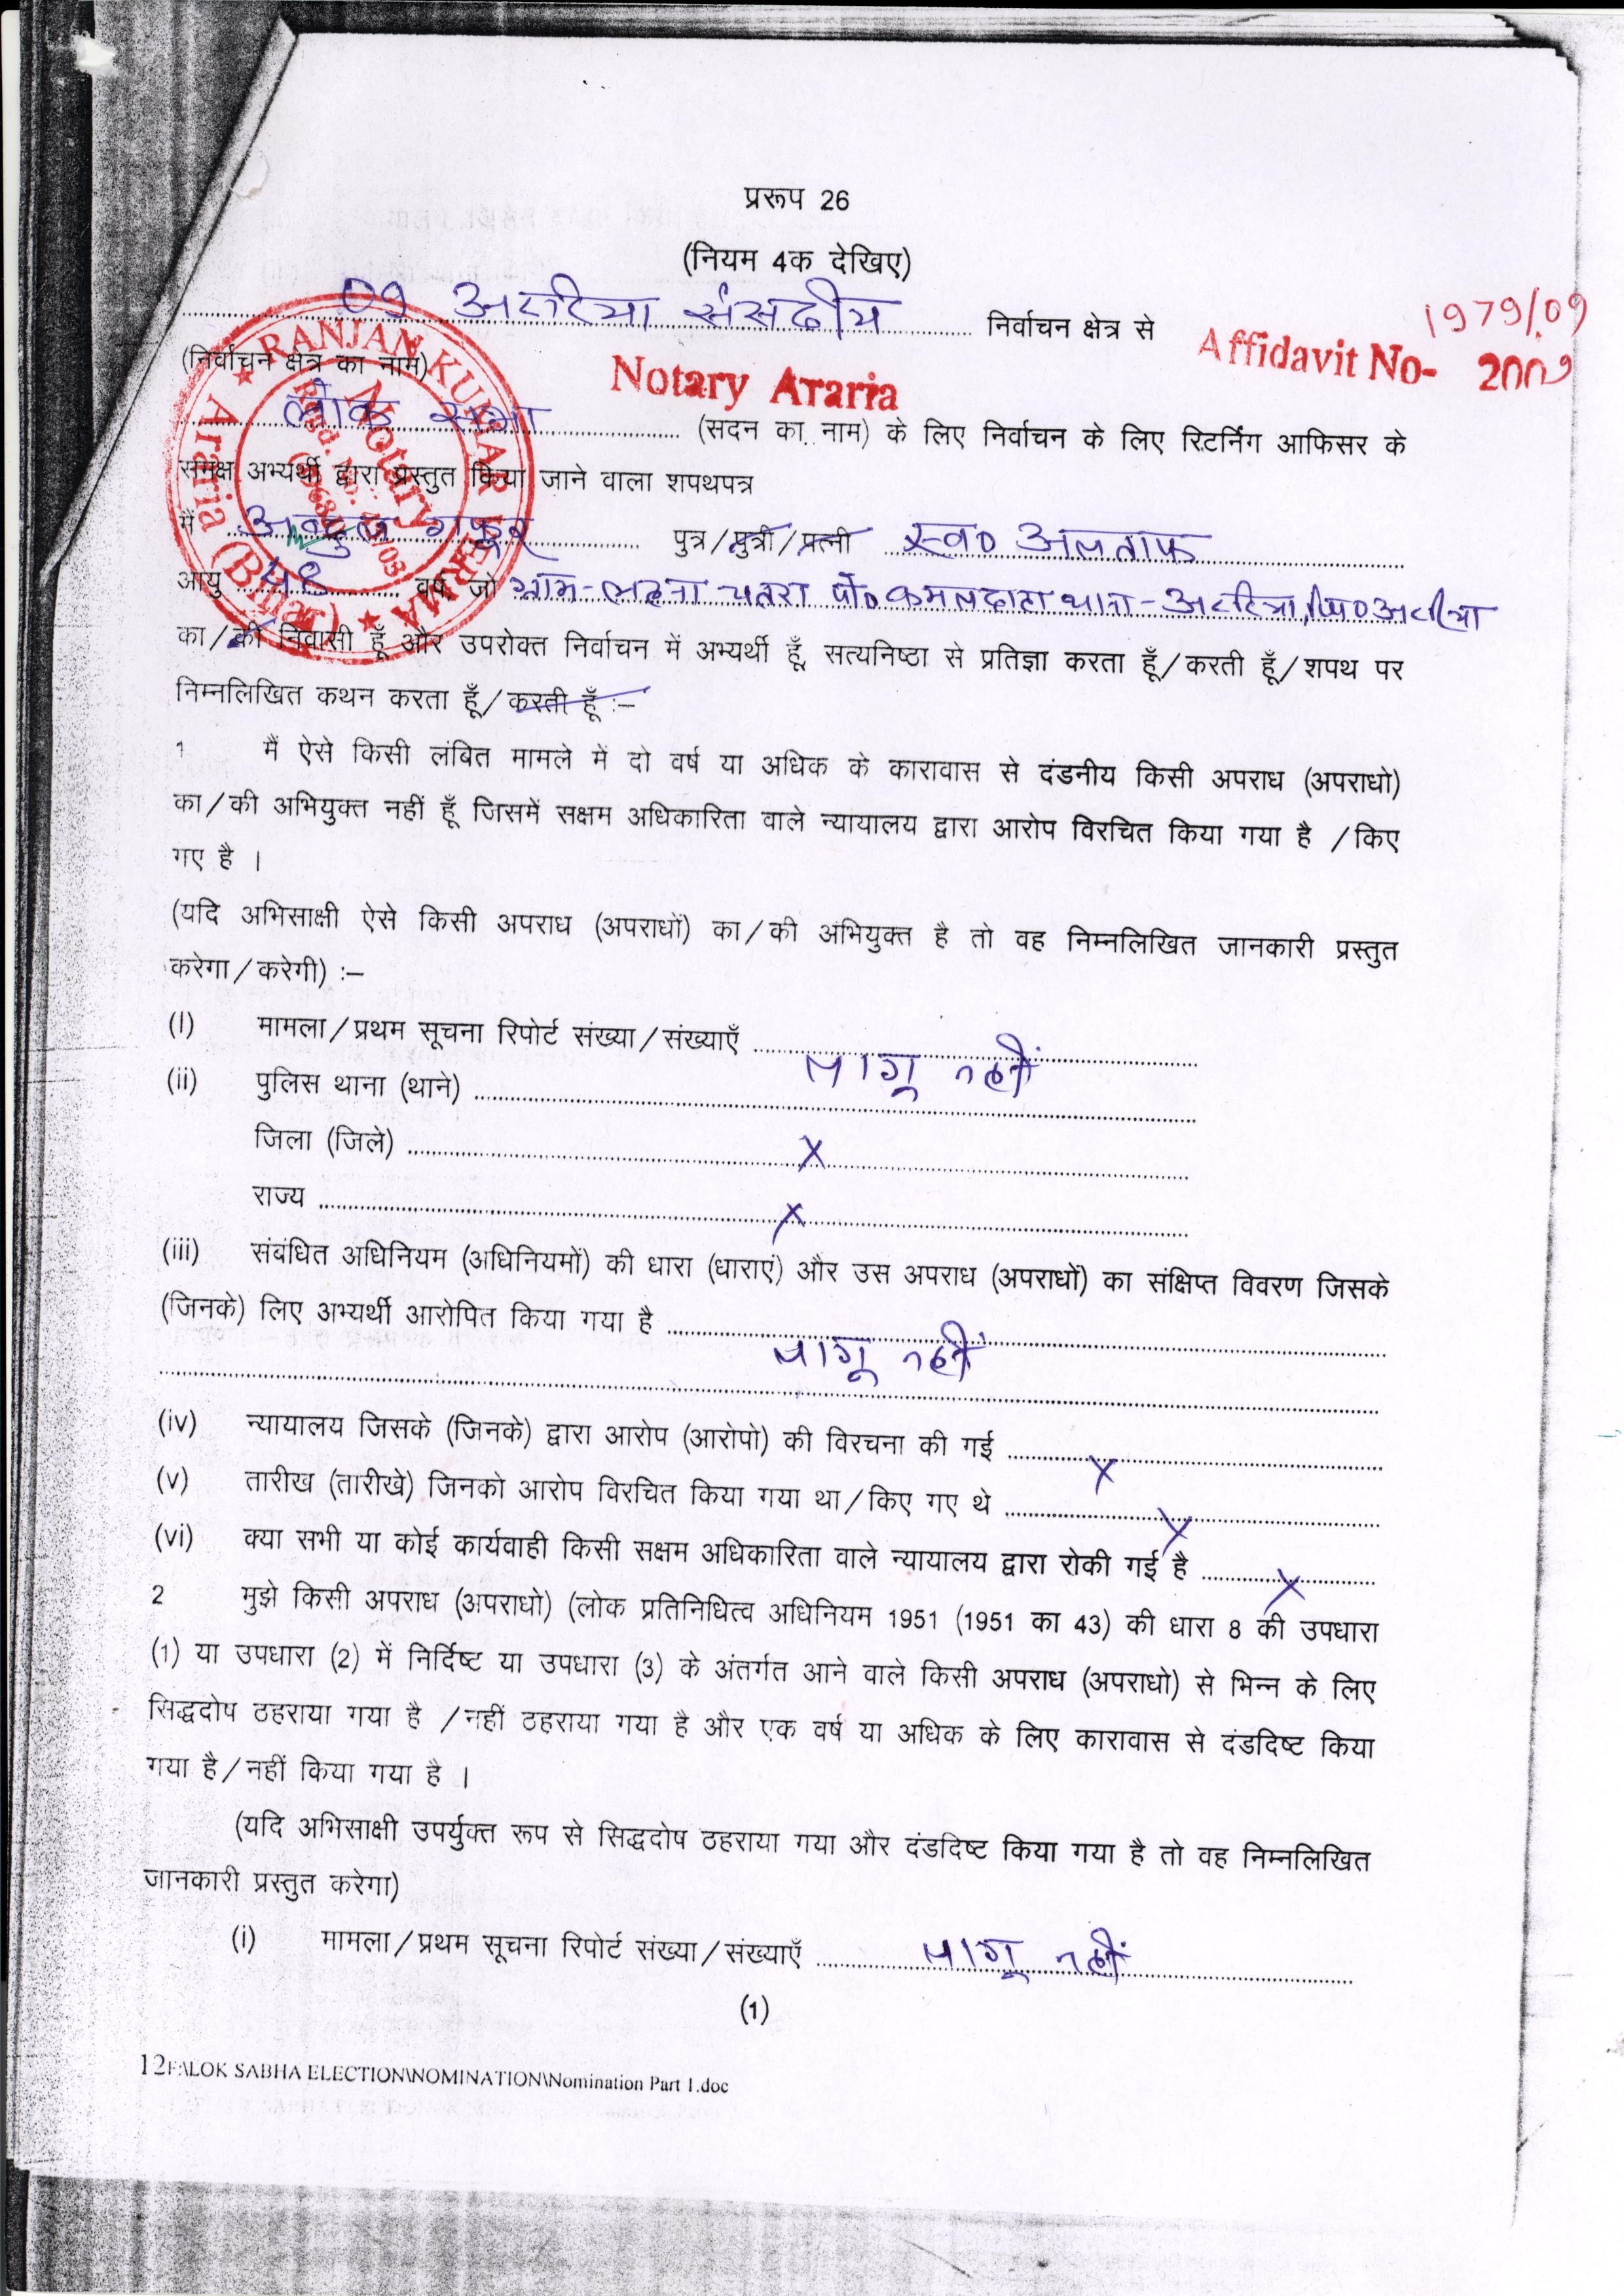 प्ररूप 26
(नियम 4क देखिए)
09 अररिया संसदीय निर्वाचन क्षेत्र से
1979/09
(निर्वाचन क्षेत्र का नाम)
Notary Araria
Affidavit No- 2009
लोक सभा (सदन का नाम) के लिए निर्वाचन के लिए रिटर्निंग आफिसर के
समक्ष अभ्यर्थी द्वारा प्रस्तुत किया जाने वाला शपथपत्र
RANJAN KUMAR VERMA
Araria (Bihar)
Notary
मैं अब्दुल गफूर पुत्र/पुत्री/पत्नी स्व० अलताफ
आयु वर्ष, जो ग्राम- चतरा पो० कमलदाहा थाना-अररिया, जि०अररिया
का/की निवासी हूँ और उपरोक्त निर्वाचन में अभ्यर्थी हूँ, सत्यनिष्ठा से प्रतिज्ञा करता हूँ/करती हूँ/शपथ पर
निम्नलिखित कथन करता हूँ/करती हूँ :–
1 मैं ऐसे किसी लंबित मामले में दो वर्ष या अधिक के कारावास से दंडनीय किसी अपराध (अपराधो)
का/की अभियुक्त नहीं हूँ जिसमें सक्षम अधिकारिता वाले न्यायालय द्वारा आरोप विरचित किया गया है /किए
गए है ।
(यदि अभिसाक्षी ऐसे किसी अपराध (अपराधों) का/की अभियुक्त है तो वह निम्नलिखित जानकारी प्रस्तुत
करेगा/करेगी) :–
(I) मामला/प्रथम सूचना रिपोर्ट संख्या/संख्याएँ
लागू नहीं
(ii) पुलिस थाना (थाने)
जिला (जिले) X
राज्य X
(iii) संबंधित अधिनियम (अधिनियमों) की धारा (धाराएं) और उस अपराध (अपराधों) का संक्षिप्त विवरण जिसके
(जिनके) लिए अभ्यर्थी आरोपित किया गया है
लागू नहीं
(iv) न्यायालय जिसके (जिनके) द्वारा आरोप (आरोपो) की विरचना की गई X
(v) तारीख (तारीखे) जिनको आरोप विरचित किया गया था/किए गए थे X
(vi) क्या सभी या कोई कार्यवाही किसी सक्षम अधिकारिता वाले न्यायालय द्वारा रोकी गई है X
2 मुझे किसी अपराध (अपराधो) (लोक प्रतिनिधित्व अधिनियम 1951 (1951 का 43) की धारा 8 की उपधारा
(1) या उपधारा (2) में निर्दिष्ट या उपधारा (3) के अंतर्गत आने वाले किसी अपराध (अपराधो) से भिन्न के लिए
सिद्धदोष ठहराया गया है /नहीं ठहराया गया है और एक वर्ष या अधिक के लिए कारावास से दंडदिष्ट किया
गया है/नहीं किया गया है ।
(यदि अभिसाक्षी उपर्युक्त रूप से सिद्धदोष ठहराया गया और दंडदिष्ट किया गया है तो वह निम्नलिखित
जानकारी प्रस्तुत करेगा)
(i) मामला/प्रथम सूचना रिपोर्ट संख्या/संख्याएँ लागू नहीं
(1)
12F:\LOK SABHA ELECTION\NOMINATION\Nomination Part 1.doc